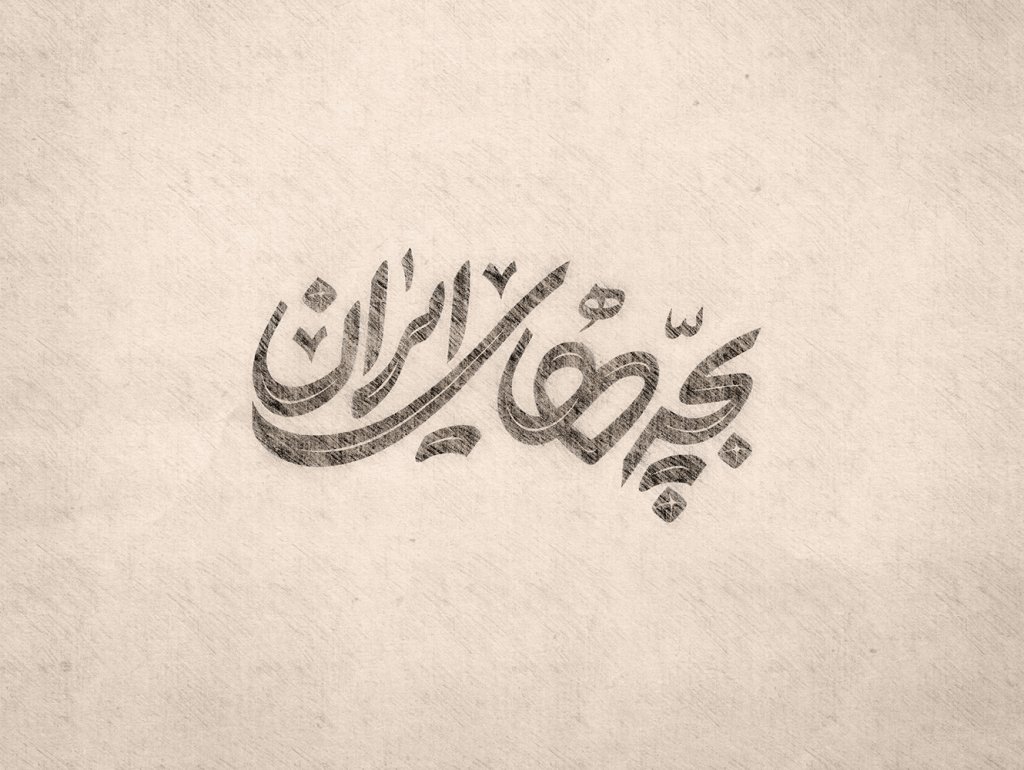 بچّه‌های ایران